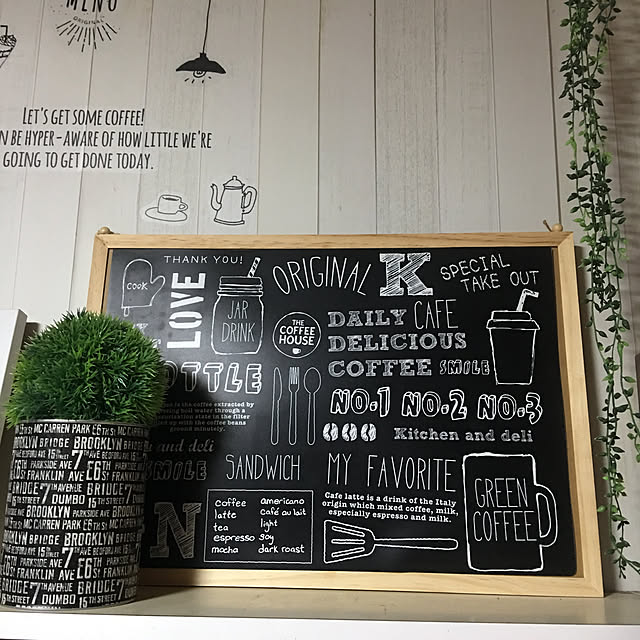 MENU
ORIGINAL
LET'S GET SOME COFFEE!
N BE HYPER-AWARE OF HOW LITTLE WE'RE
GOING TO GET DONE TODAY.
THANK YOU!
COOK
LOVE
JAR
DRINK
ORIGINAL
K
SPECIAL
TAKE OUT
THE
COFFEE
HOUSE
DAILY CAFE
DELICIOUS
COFFEE SMILE
OTTLE
is the coffee extracted by
boil water through a
state in the filter
up with the coffee beans
ground minutely.
NO.1 NO.2 NO.3
Kitchen and deli
and deli
SMILE
SANDWICH
MY FAVORITE
Cafe latte is a drink of the Italy
origin which mixed coffee, milk,
especially espresso and milk.
GREEN
COFFEE
N
coffee americano
latte café au lait
tea light
espresso soy
mocha dark roast
MC CARREN PARK E6TH ST
BROOKLYN BRIDGE BROOKLYN
PARKSIDE AVE 7TH
FRANKLIN AVE E6
BRIDGE 7TH AVENUE BRIDGE
15TH STREET DUMBO 15TH STREET